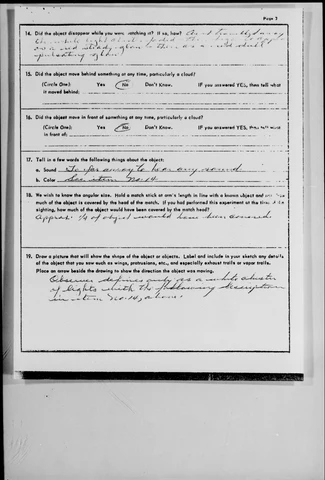 Page 3
14. Did the object disappear while you were watching it? If so, how?
as a red steady glow & then as a red dull
pulsating glow.
15. Did the object move behind something at any time, particularly a cloud?
(Circle One): Yes No Don't Know. IF you answered YES, then tell what
it moved behind:
16. Did the object move in front of something at any time, particularly a cloud?
(Circle One): Yes No Don't Know. IF you answered YES, then tell what
in front of:
17. Tell in a few words the following things about the object:
a. Sound Too far away to hear any sound
b. Color See item No. 14.
18. We wish to know the angular size. Hold a match stick at arm's length in line with a known object and note how
much of the object is covered by the head of the match. If you had performed this experiment at the time of the
sighting, how much of the object would have been covered by the match head?
Approx. of object would have been covered
19. Draw a picture that will show the shape of the object or objects. Label and include in your sketch any details
of the object that you saw such as wings, protrusions, etc., and especially exhaust trails or vapor trails.
Place an arrow beside the drawing to show the direction the object was moving.
Observer defines only as a white cluster
of lights with the following description
in item No. 14, above: